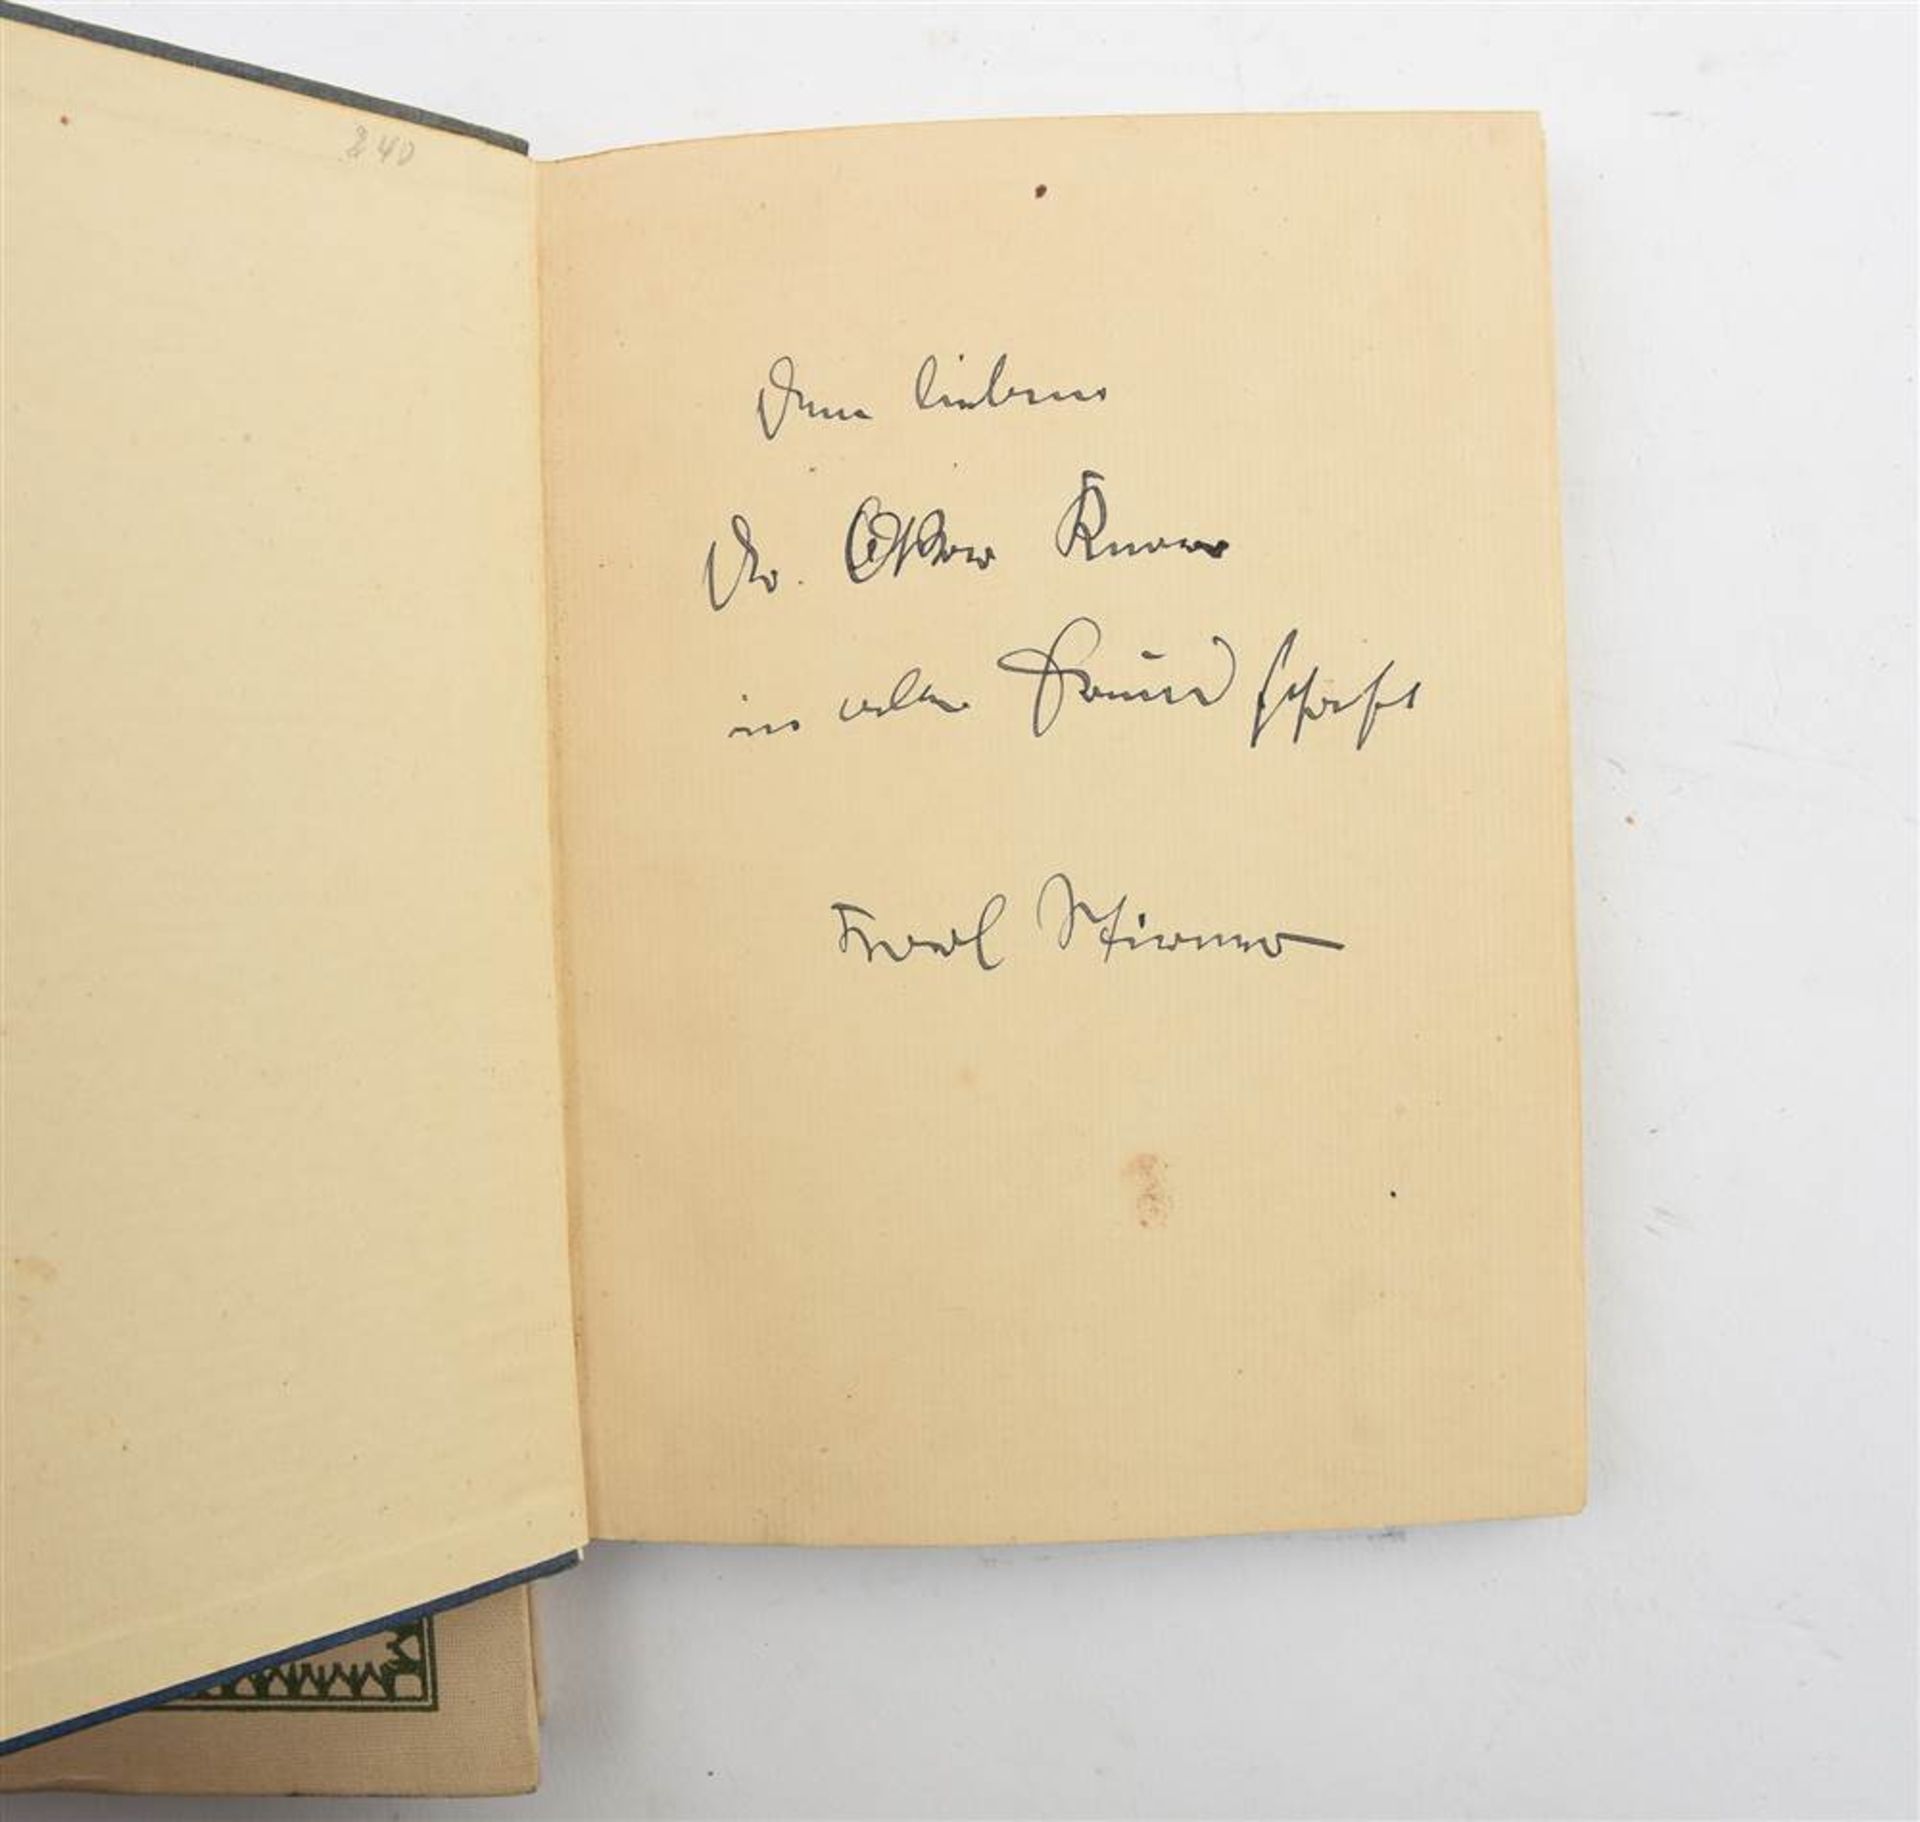 240
Dem lieben
Dr. Oskar
in alter Freundschaft
Karl Stirner